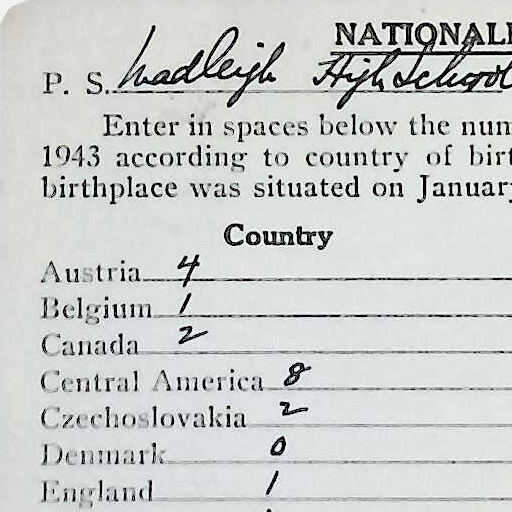 NATIONALI
P. S. Wadleigh High School
Enter in spaces below the num
1943 according to country of birt
birthplace was situated on January
Country
Austria 4
Belgium 1
Canada 2
Central America 8
Czechoslovakia 2
Denmark 0
England 1